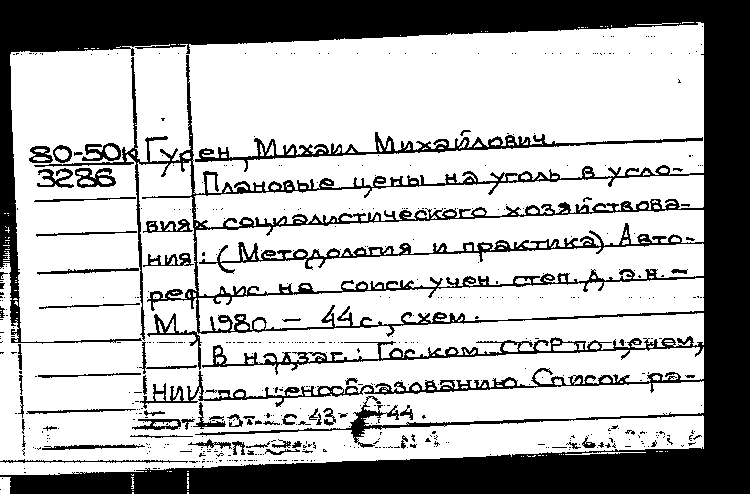 80-50к Гурен, Михаил Михайлович.
3286 Плановые цены на уголь в усло-
виях социалистического хозяйствова-
ния: (Методология и практика). Авто-
реф. дис. на соиск. учен. степ. д.э.н. -
М., 1980. - 44 с., схем.
В надзаг.: Гос. ком. СССР по ценам,
НИИ по ценообразованию. Список ра-
бот авт.: с. 43-44.
№ 1